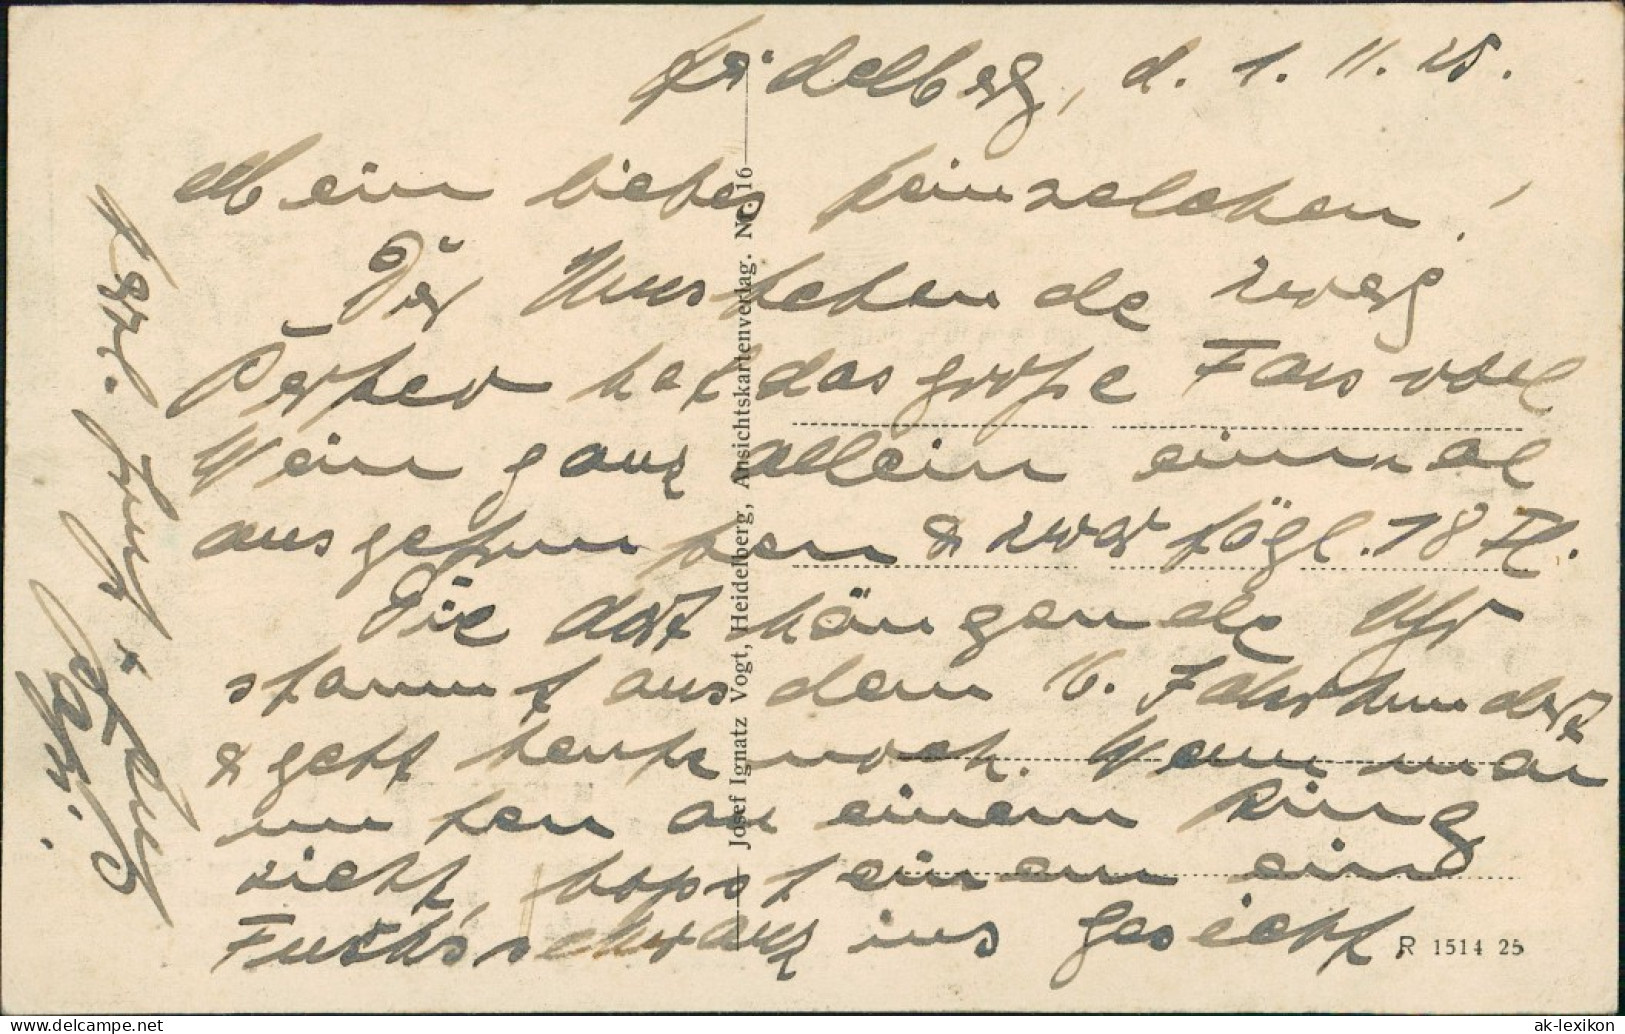 Heidelberg, d. 1. 11. 25.
Mein liebes Heinzelchen!
Der Umstehende Zwerg
Perkeo hat das große Fass voll
Wein ganz allein einmal
ausgetrunken & zwar tägl. 18 Fl.
Die dort hängende Uhr
stammt aus dem 16. Jahrhundert
& geht heute noch. Wenn man
unten an einem Ring
zieht, hopst einem ein
Fuchsschwanz ins Gesicht
Herzl. Gruß &
Kuß
Josef Ignatz Vogt, Heidelberg, Ansichtskartenverlag. No. 16
R 1514 25
ak-lexikon
www.delcampe.net